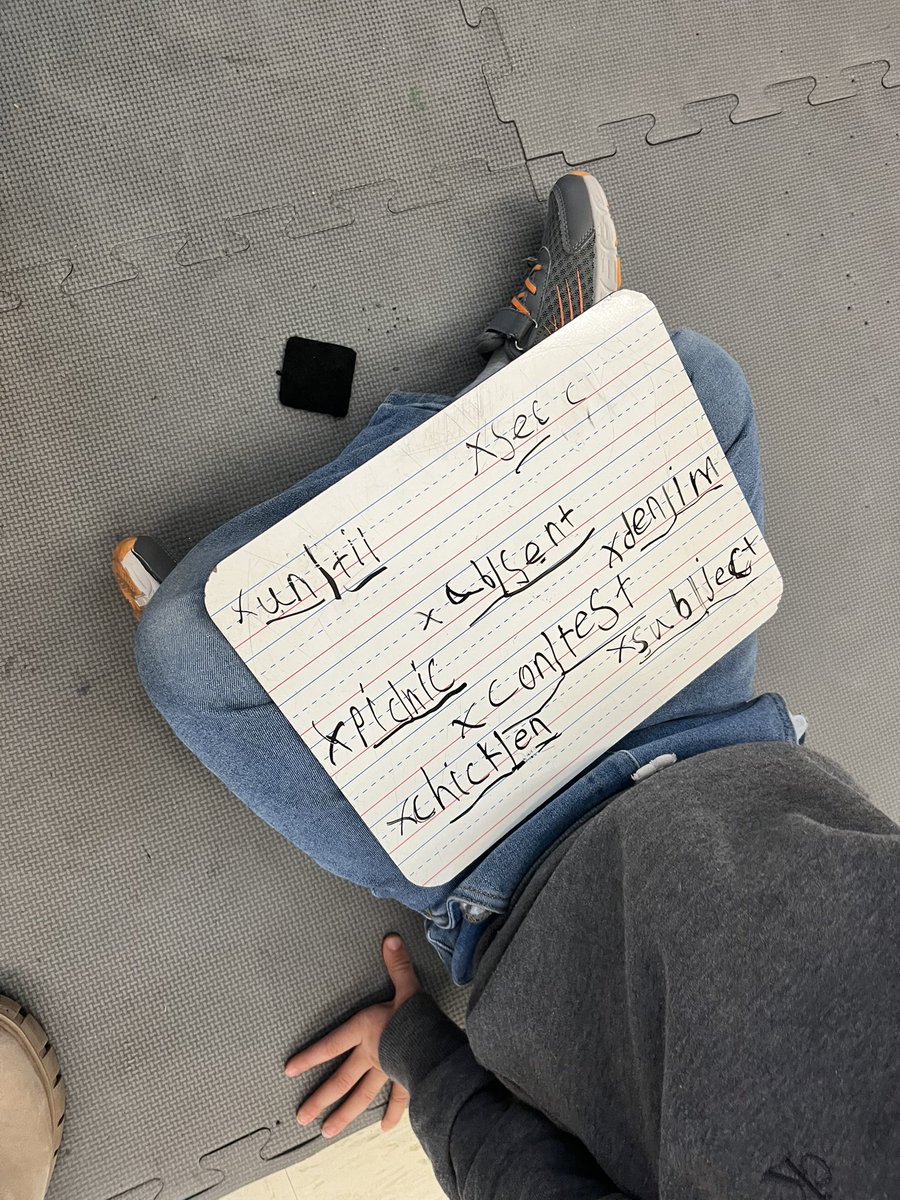 xun|til xsec c
xab|sent xden|im
xpic|nic xcon|test xsub|ject
xchick|en